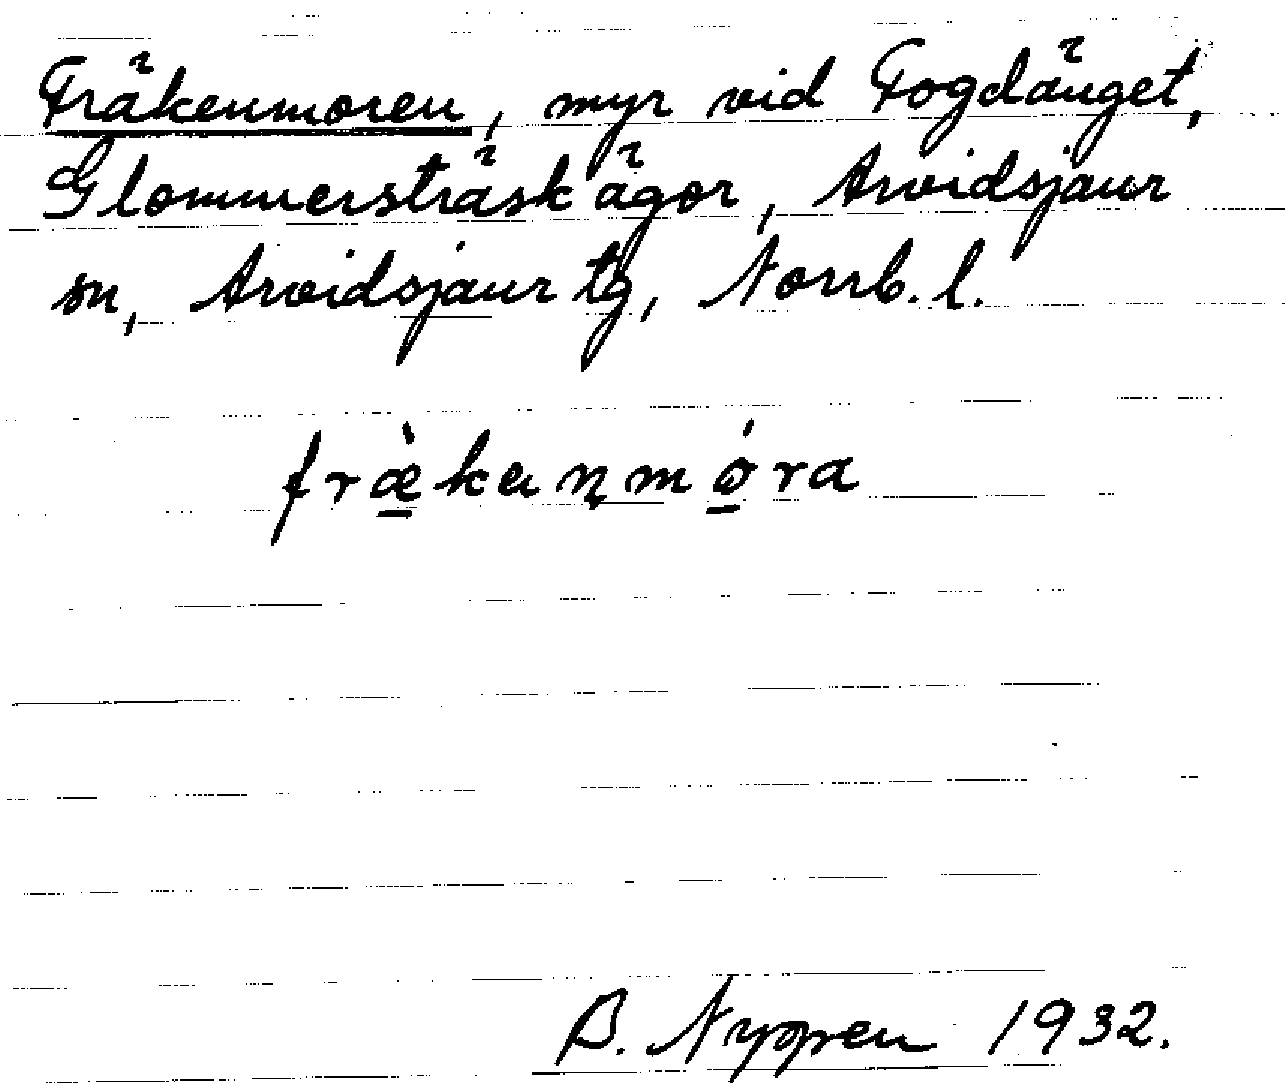 Fräkenmoren, myr vid Fogdänget,
Glommersträsk ägor, Arvidsjaur
sn, Arvidsjaur tg, Norrb. l.
fræ̀kanmǿra
1932.